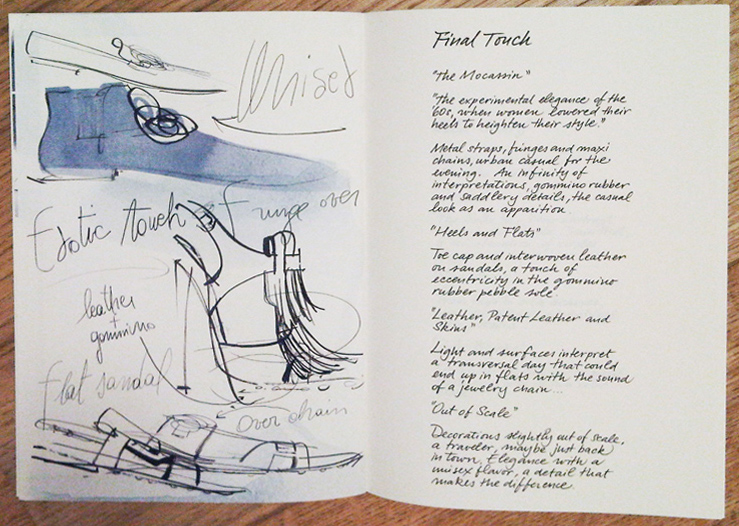 Unisex
Exotic touch Fringe over
leather
+
gommino
Flat sandal
over chain
Final Touch
"The Mocassin"
"The experimental elegance of the
'60s, when women lowered their
heels to heighten their style."
Metal straps, fringes and maxi
chains, urban casual for the
evening. An infinity of
interpretations, gommino rubber
and saddlery details, the casual
look as an apparition
"Heels and Flats"
Toe cap and interwoven leather
on sandals, a touch of
eccentricity in the gommino
rubber pebble sole
"Leather, Patent Leather and
Skins"
Light and surfaces interpret
a transversal day that could
end up in flats with the sound
of a jewelry chain...
"Out of Scale"
Decorations slightly out of scale,
a traveler, maybe just back
in town. Elegance with a
unisex flavor, a detail that
makes the difference